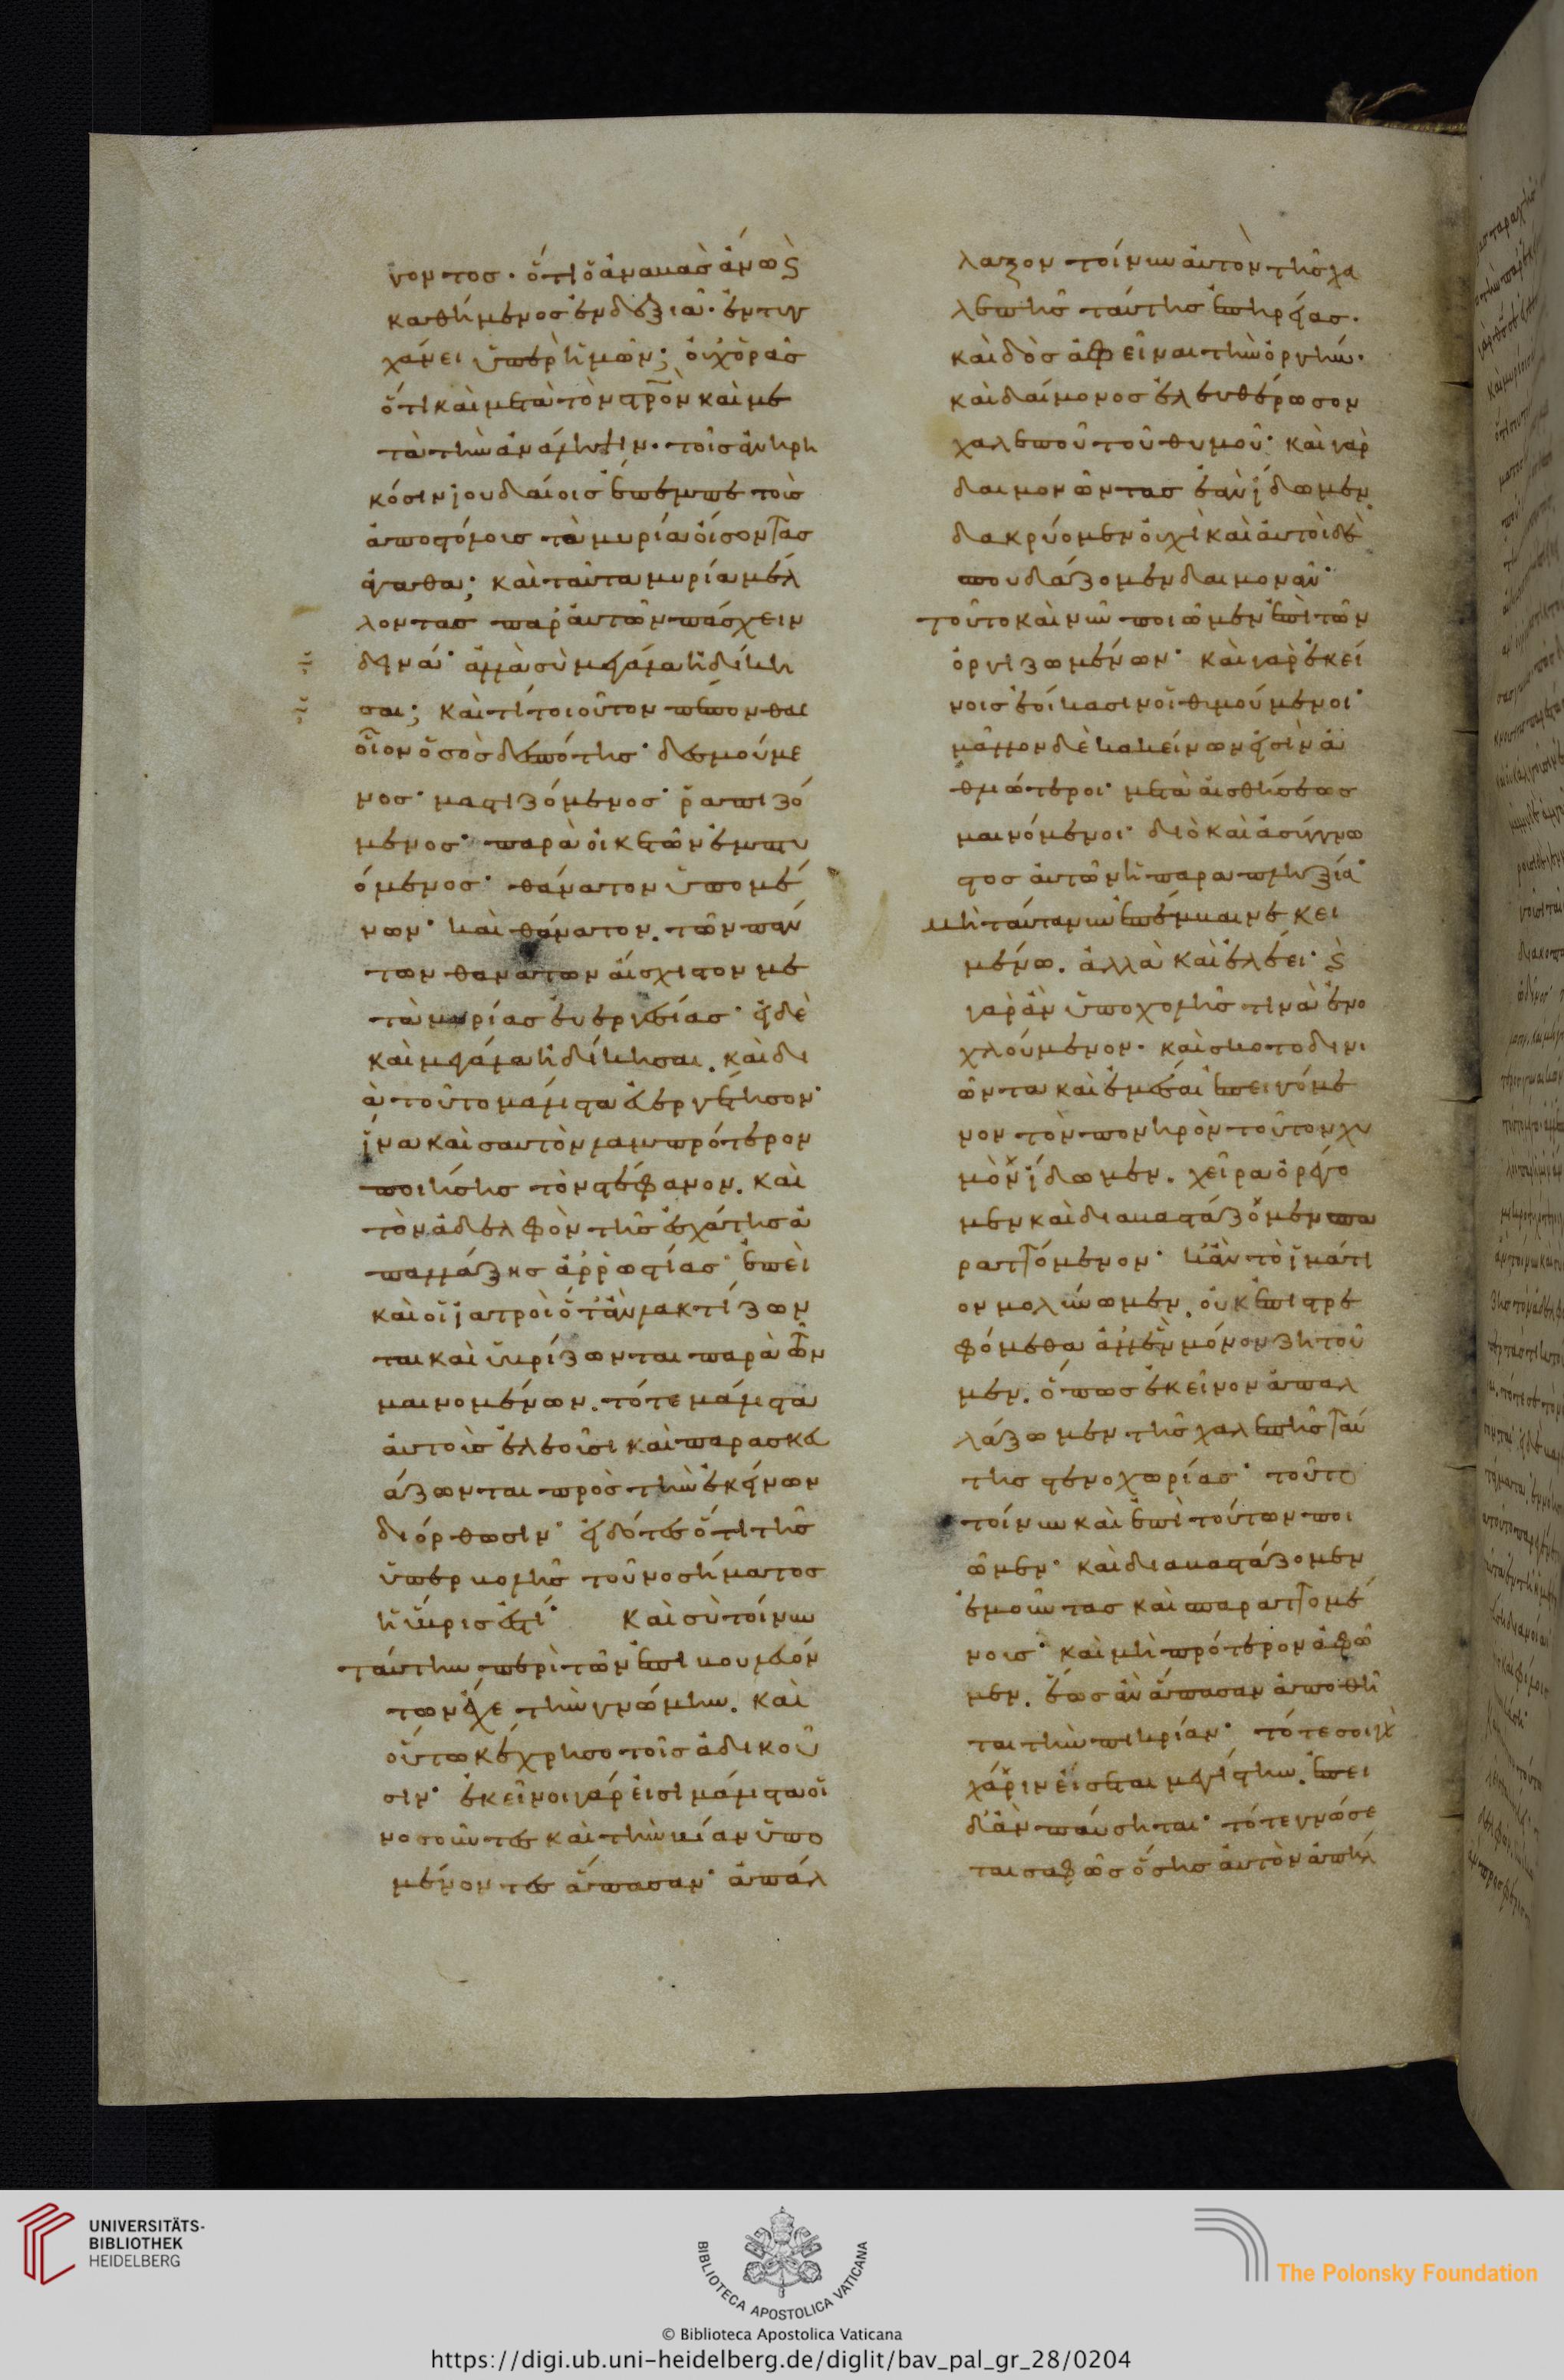 γοντος· ὅτι ὁ ἄνω κάτω ς
καθήμενος ἐν δεξιᾷ· ἐντυγ
χάνει ὑπὲρ ἡμῶν; οὐχ ὁρᾶς
ὅτι καὶ μετὰ τὸν στρὸν καὶ με
τὰ τὴν ἀνάληψιν· τοῖς ἀνῃρη
κόσιν ἰουδαίοις ἔπεμπε τοὺς
ἀποστόλους τὰ μυρία οἴσοντας
ἀγαθά; καὶ ταῦτα μυρία μέλ
λοντας παρ' αὐτῶν πάσχειν
δεινά· ἀλλὰ σὺ μεγάλα ἠδίκη
σαι; καὶ τί τοιοῦτον πέπονθας
οἷον ὁ σὸς δεσπότης· δεσμούμε
νος· μαστιζόμενος· ῥαπιζό
μενος· παρὰ οἰκετῶν ἐμπτυ
όμενος· θάνατον ὑπομέ
νων· καὶ θάνατον. τῶν πάν
των θανάτων αἴσχιστον με
τὰ μυρίας εὐεργεσίας· εἰ δὲ
καὶ μεγάλα ἠδίκησαι. καὶ δι
ὰ τοῦτο μάλιστα εὐεργέτησον·
ἵνα καὶ σαυτὸν λαμπρότερον
ποιήσῃς τὸν στέφανον. καὶ
τὸν ἀδελφὸν τῆς ἐσχάτης ἀ
παλλάξῃς ἀρρωστίας· ἐπεὶ
καὶ οἱ ἰατροὶ ὅταν λακτίζων
ται καὶ ὑβρίζωνται παρὰ τῶν
μαινομένων. τότε μάλιστα
αὐτοὺς ἐλεοῦσι καὶ παρασκευ
άζωνται πρὸς τὴν ἐκείνων
διόρθωσιν· εἰδότες ὅτι τῆς
ὑπερβολῆς τοῦ νοσήματος
ἡ ὕβρις ἐστί· Καὶ σὺ τοίνυν
ταύτην περὶ τῶν ἐπιβουλευόν
των ἔχε τὴν γνώμην. καὶ
οὕτω κέχρησο τοῖς ἀδικοῦ
σιν· ἐκεῖνοι γάρ εἰσι μάλιστα οἱ
νοσοῦντες καὶ τὴν βίαν ὑπο
μένοντες ἅπασαν· ἀπάλ
λαξον τοίνυν αὐτὸν τῆς χα
λεπῆς ταύτης ἐπηρείας·
καὶ δὸς ἀφεῖναι τὴν ὀργήν·
καὶ δαίμονος ἐλευθέρωσον
χαλεποῦ τοῦ θυμοῦ· καὶ γὰρ
δαιμονῶντας ἐὰν ἴδωμεν
δακρύομεν οὐχὶ καὶ αὐτοὶ δὲ
σπουδάζομεν δαιμονᾶν·
τοῦτο καὶ νῦν ποιῶμεν ἐπὶ τῶν
ὀργιζωμένων· καὶ γὰρ ἐκεί
νοις ἐοίκασιν οἱ θυμούμενοι·
μᾶλλον δὲ κἀκείνων εἰσὶν ἀ
θλιώτεροι· μετὰ αἰσθήσεως
μαινόμενοι· διὸ καὶ ἀσύγγνω
στος αὐτῶν ἡ παραπληξία·
μὴ τοίνυν ἐπέμβαινε κει
μένω. ἀλλὰ καὶ ἐλέει· ς
γὰρ ἂν ὑπὸ χολῆς τινὰ ἐνο
χλούμενον· καὶ σκοτοδινι
ῶντα καὶ ἐμέσαι ἐπειγόμε
νον τὸν πονηρὸν τοῦτον χυ
μὸν ἴδωμεν. χεῖρα ὀρέγο
μεν καὶ διαβαστάζομεν σπα
ραττόμενον· κἂν τὸ ἱμάτι
ον μολύνωμεν. οὐκ ἐπιστρε
φόμεθα ἀλλ' ἓν μόνον ζητοῦ
μεν. ὅπως ἐκεῖνον ἀπαλ
λάξωμεν τῆς χαλεπῆς ταύ
της στενοχωρίας· τοῦτο
τοίνυν καὶ ἐπὶ τούτων ποι
ῶμεν· καὶ διαβαστάζομεν
ἐμοῦντας καὶ σπαραττομέ
νους· καὶ μὴ πρότερον ἀφῶ
μεν. ἕως ἂν ἅπασαν ἀποθῆ
ται τὴν πικρίαν· τότε σοι καὶ
χάριν εἴσεται μεγίστην. ἐπει
δ' ἂν παύσηται· τότε γνώσε
ται σαφῶς ὅσης αὐτὸν ἀπήλ
UNIVERSITÄTS-
BIBLIOTHEK
HEIDELBERG
BIBLIOTECA APOSTOLICA VATICANA
The Polonsky Foundation
© Biblioteca Apostolica Vaticana
https://digi.ub.uni-heidelberg.de/diglit/bav_pal_gr_28/0204